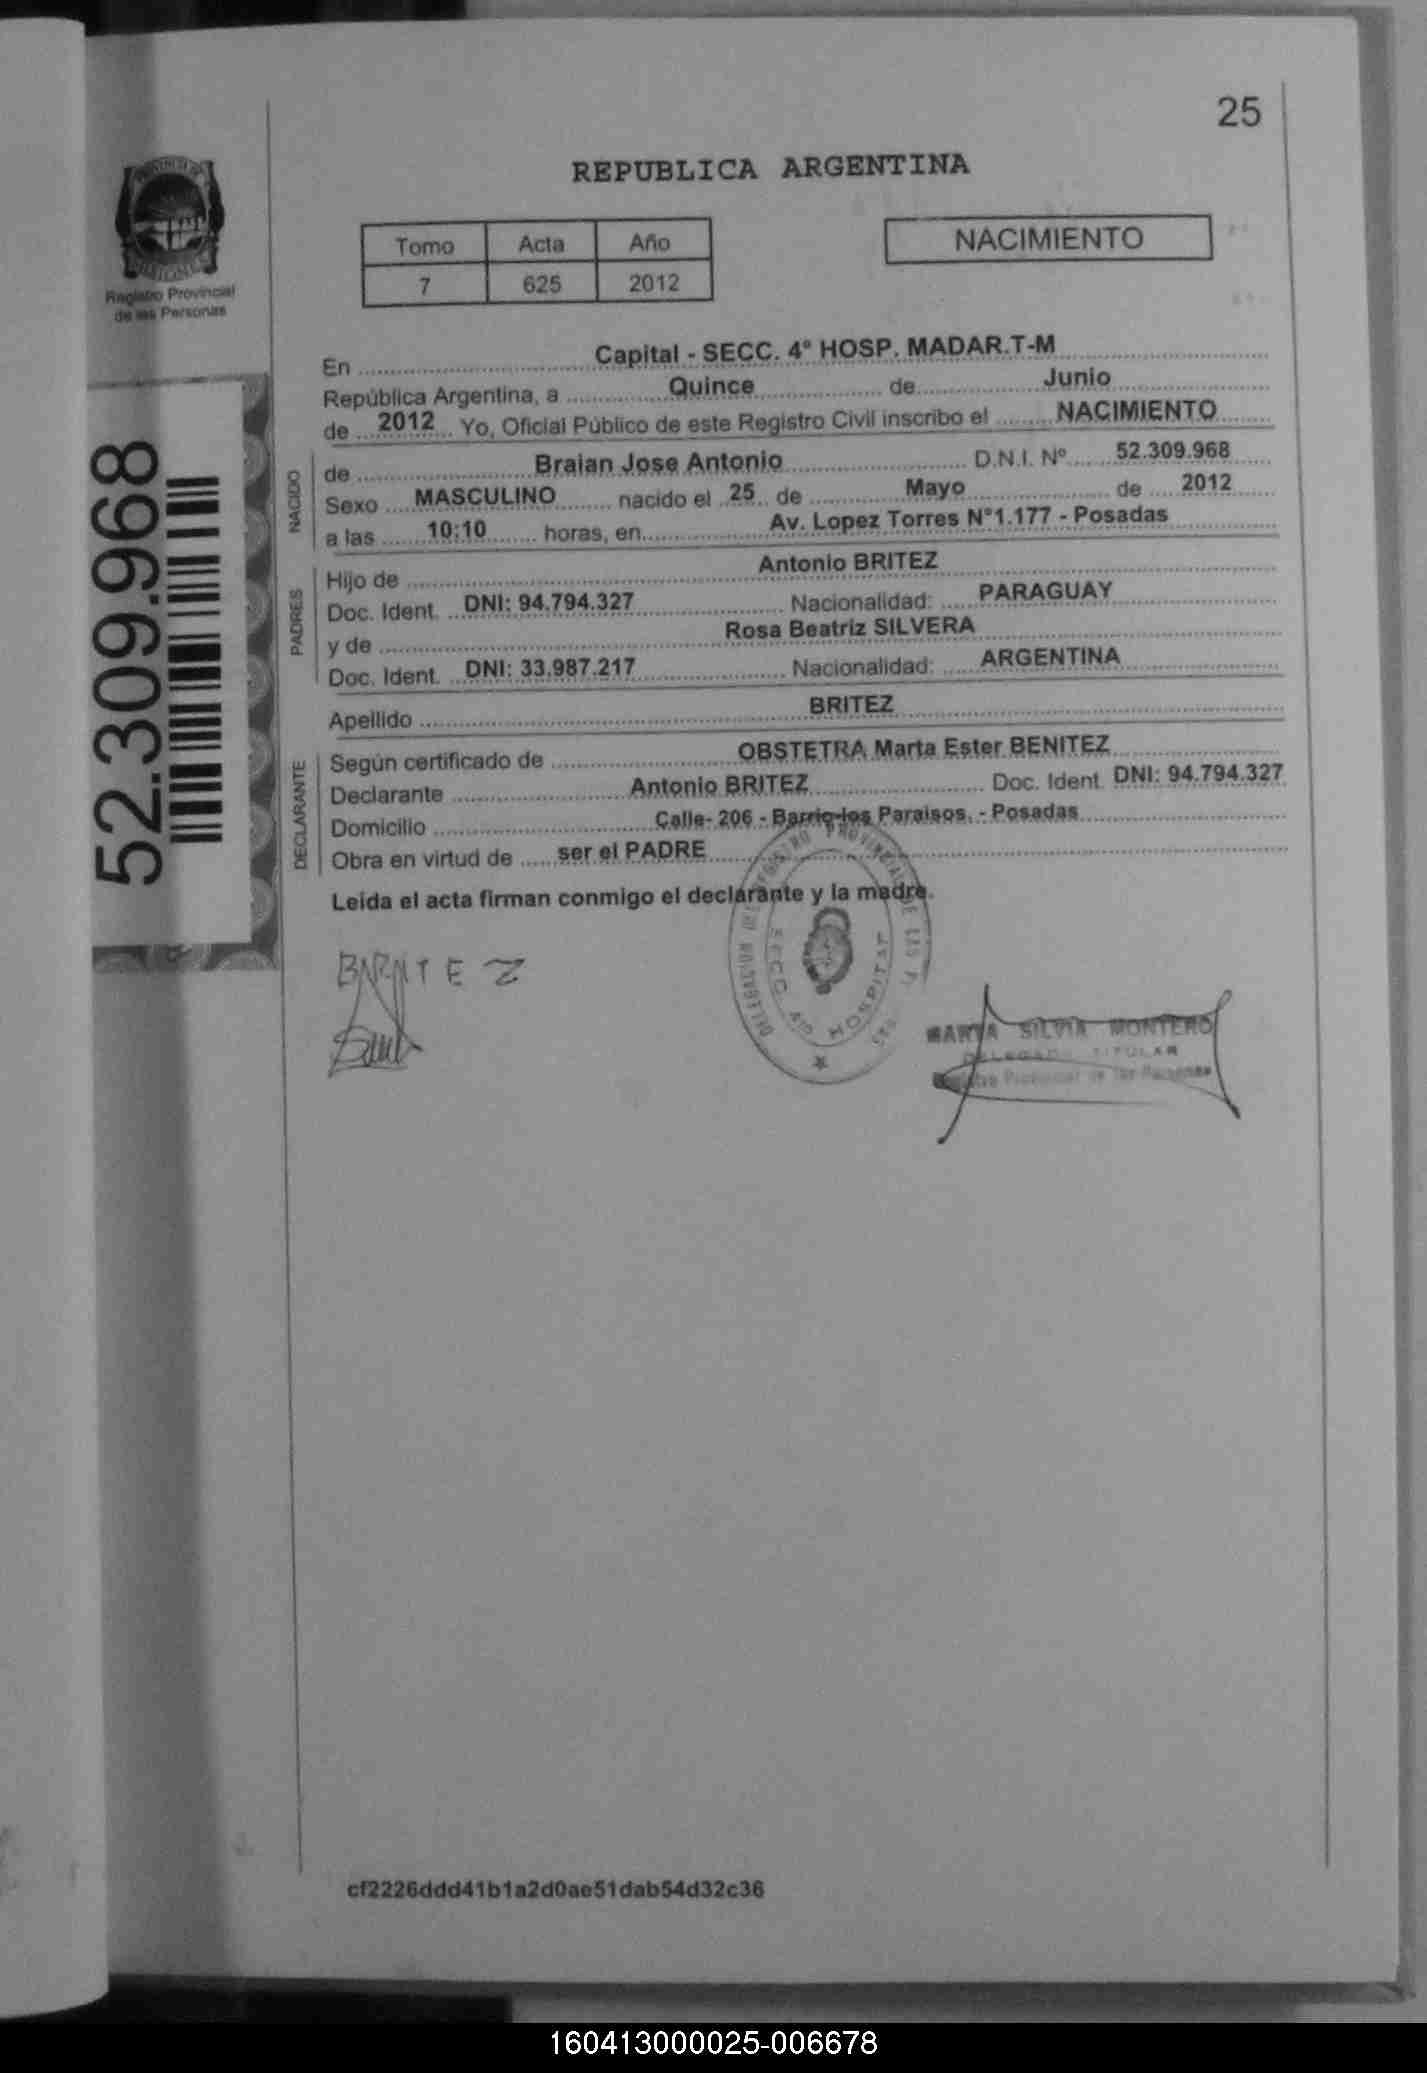 25
REPUBLICA ARGENTINA
Tomo Acta Año
7 625 2012
NACIMIENTO
PROVINCIA DE
MISIONES
Registro Provincial
de las Personas
52.309.968
En Capital - SECC. 4° HOSP. MADAR.T-M
República Argentina, a Quince de Junio
de 2012 Yo, Oficial Público de este Registro Civil inscribo el NACIMIENTO
NACIDO
de Braian Jose Antonio D.N.I. Nº 52.309.968
Sexo MASCULINO nacido el 25 de Mayo de 2012
a las 10:10 horas, en Av. Lopez Torres N°1.177 - Posadas
PADRES
Hijo de Antonio BRITEZ
Doc. Ident. DNI: 94.794.327 Nacionalidad: PARAGUAY
y de Rosa Beatriz SILVERA
Doc. Ident. DNI: 33.987.217 Nacionalidad: ARGENTINA
Apellido BRITEZ
DECLARANTE
Según certificado de OBSTETRA Marta Ester BENITEZ
Declarante Antonio BRITEZ Doc. Ident. DNI: 94.794.327
Domicilio Calle- 206 - Barrio-los Paraisos. - Posadas
Obra en virtud de ser el PADRE
Leída el acta firman conmigo el declarante y la madre.
DELEGACION DEL REGISTRO PROVINCIAL DE LAS
SECC. 4ta HOSPITAL
MARTA SILVIA MONTERO
DELEGADA TITULAR
Registro Provincial de las Personas
cf2226ddd41b1a2d0ae51dab54d32c36
160413000025-006678